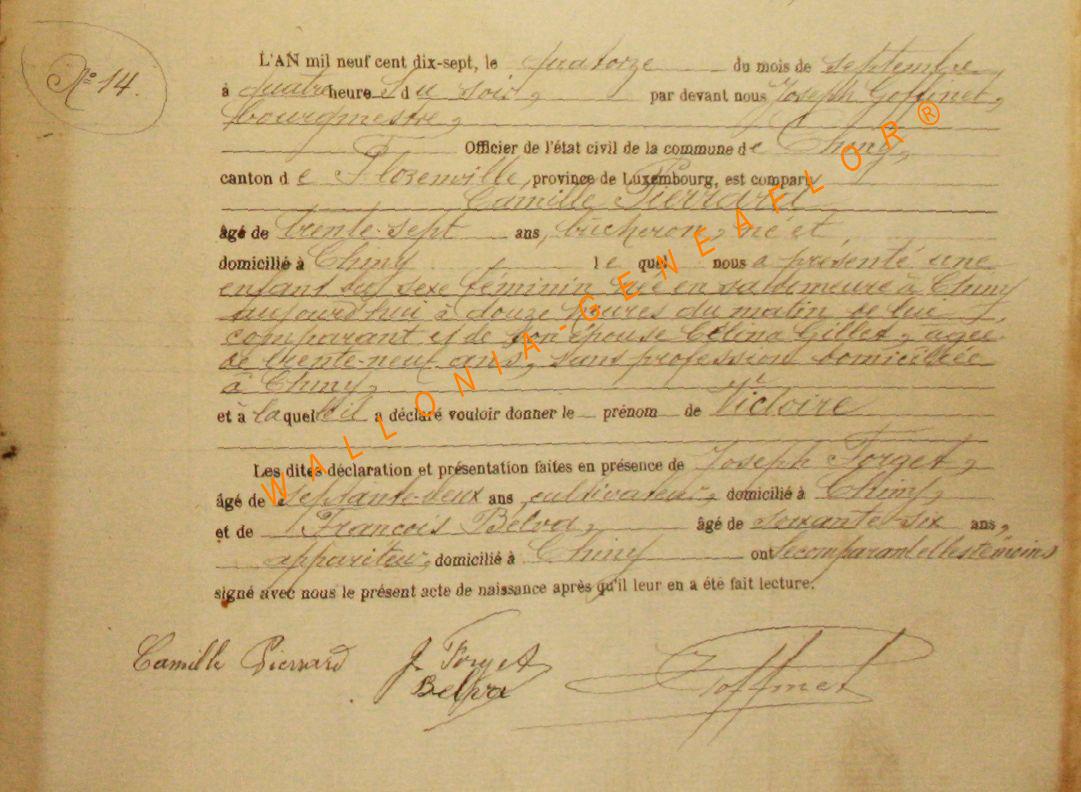 No 14.
L'AN mil neuf cent dix-sept, le quatorze du mois de septembre
à quatre heure s du soir, par devant nous Joseph Goffinet,
bourgmestre,
Officier de l'état civil de la commune de Chiny,
canton de Florenville, province de Luxembourg, est comparu
Camille Pierrard
âgé de trente-sept ans, bûcheron, né et
domicilié à Chiny lequel nous a présenté une
enfant du sexe féminin née en sa demeure à Chiny
aujourd'hui à douze heures du matin de lui
comparant et de son épouse Célina Gillet, âgée
de trente-neuf ans, sans profession domiciliée
à Chiny,
et à laquelle il a déclaré vouloir donner le prénom de Victoire
Les dites déclaration et présentation faites en présence de Joseph Forget,
âgé de septante-deux ans, cultivateur, domicilié à Chiny,
et de François Belva, âgé de soixante-six ans,
appariteur, domicilié à Chiny ont le comparant et les témoins
signé avec nous le présent acte de naissance après qu'il leur en a été fait lecture.
Camille Pierrard J. Forget Goffinet
Belva
WALLONIA-GENEAFLOR®